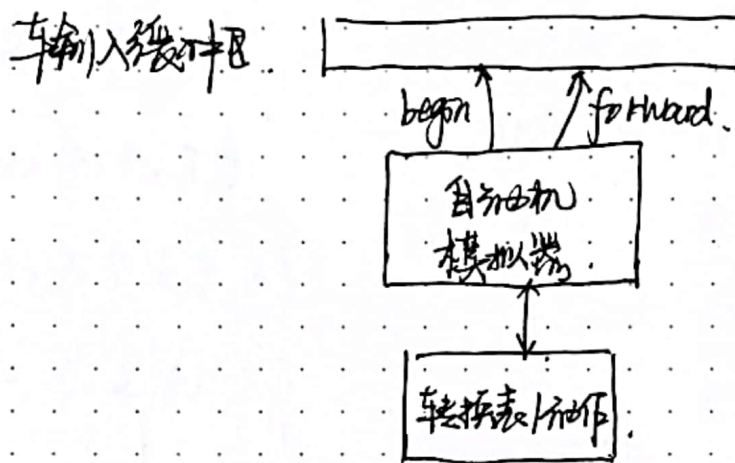 输入缓冲区
begin
forward.
自动机
模拟器
转换表/动作